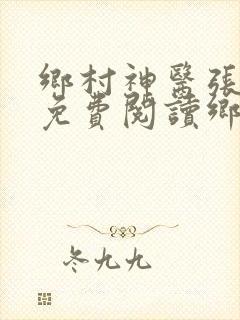 鄉村神醫張
免費閱讀鄉
冬九九